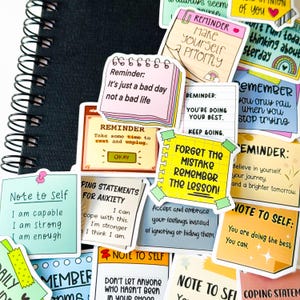 of YOU
REMINDER
Make
yourself
a
PRIORITY
Reminder:
It's just a bad day
not a bad life
REMINDER:
YOU'RE DOING
YOUR BEST.
KEEP GOING.
You only fail
when you
STOP trying
REMINDER
Take some time to
rest and unplug.
OKAY
FORGET THE
MISTAKE
REMEMBER
THE LESSON!
REMINDER:
Believe in yourself,
your journey
and a brighter tomorrow.
Note to Self
I am capable
I am strong
I am enough
PING STATEMENTS
FOR ANXIETY
I can
cope with this
I'm stronger
I think I am.
Accept and embrace
your feelings instead
of ignoring or hiding them.
NOTE TO SELF:
You are doing the best
you can.
NOTE TO SELF
DON'T LET ANYONE
WHO HASN'T BEEN
IN YOUR SHOES
EMEMBER
NOTE TO SE
COPING STATEM